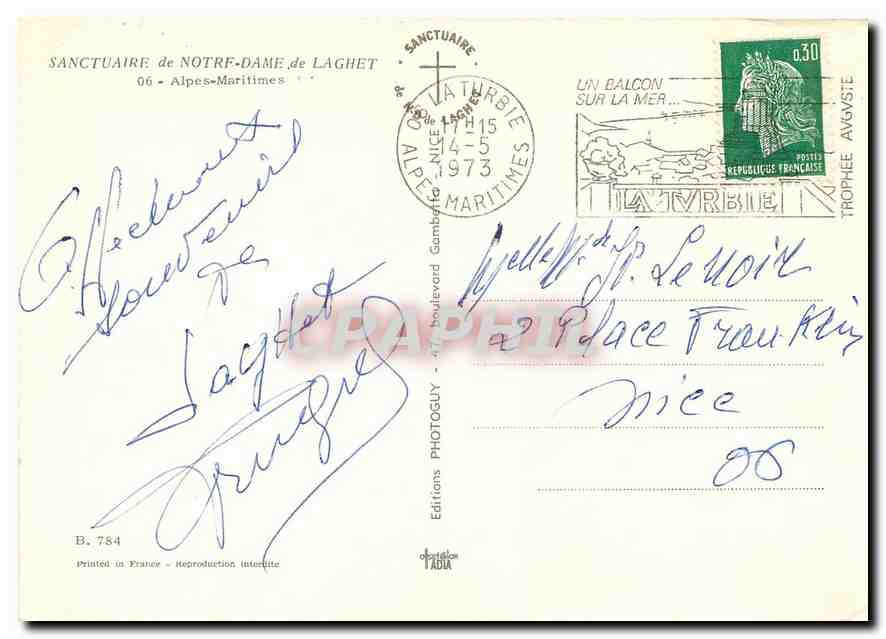 SANCTUAIRE de NOTRE-DAME de LAGHET
06 - Alpes-Maritimes
Affectueux
souvenir
de
Laghet
B. 784
Printed in France - Reproduction interdite
Editions PHOTOGUY - 47, boulevard Gambetta - NICE
SANCTUAIRE
de N.D. de LAGHET
06 LA TURBIE
17 H 15
14-5
1973
ALPES MARITIMES
UN BALCON
SUR LA MER...
LA TVRBIE
TROPHEE AVGVSTE
0,30
POSTES
REPUBLIQUE FRANÇAISE
CPAPHIL
Le Noir
2 Place Franklin
Nice
06
ADIA